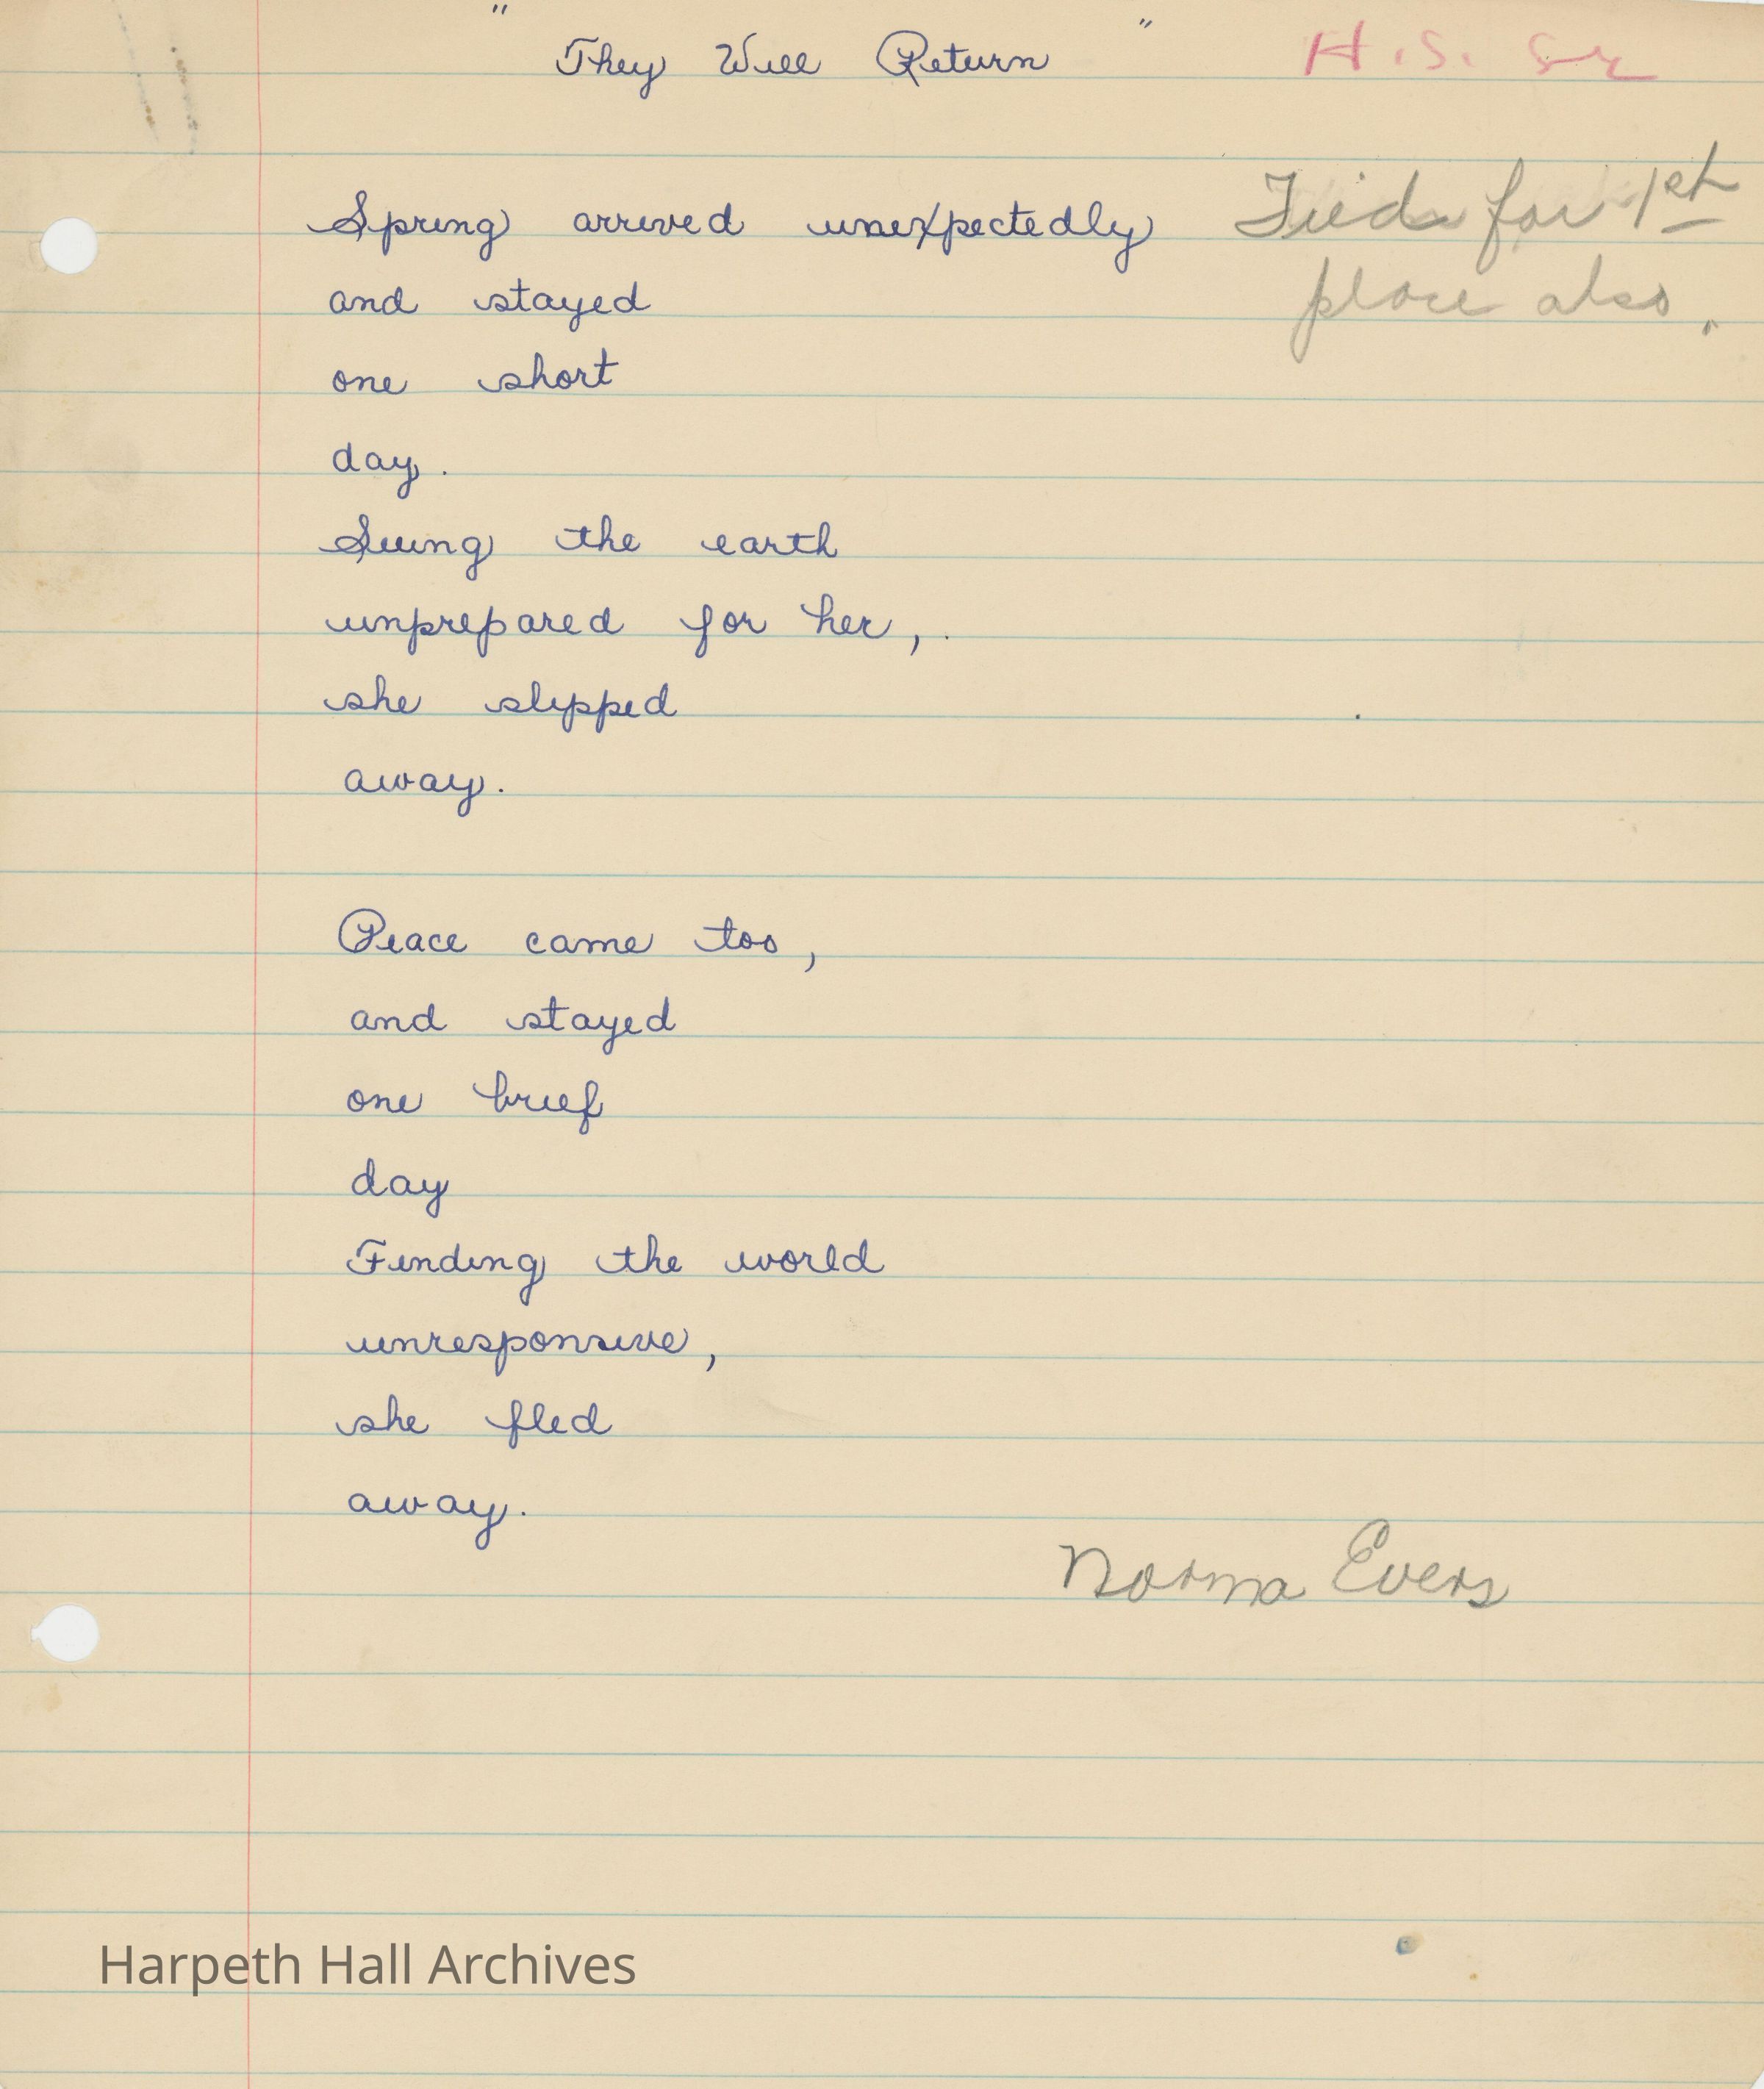 "They Will Return"
H.S. Sr
Tied for 1st
place also.
Spring arrived unexpectedly
and stayed
one short
day.
Seeing the earth
unprepared for her,
she slipped
away.
Peace came too,
and stayed
one brief
day
Finding the world
unresponsive,
she fled
away.
Norma Evers
Harpeth Hall Archives